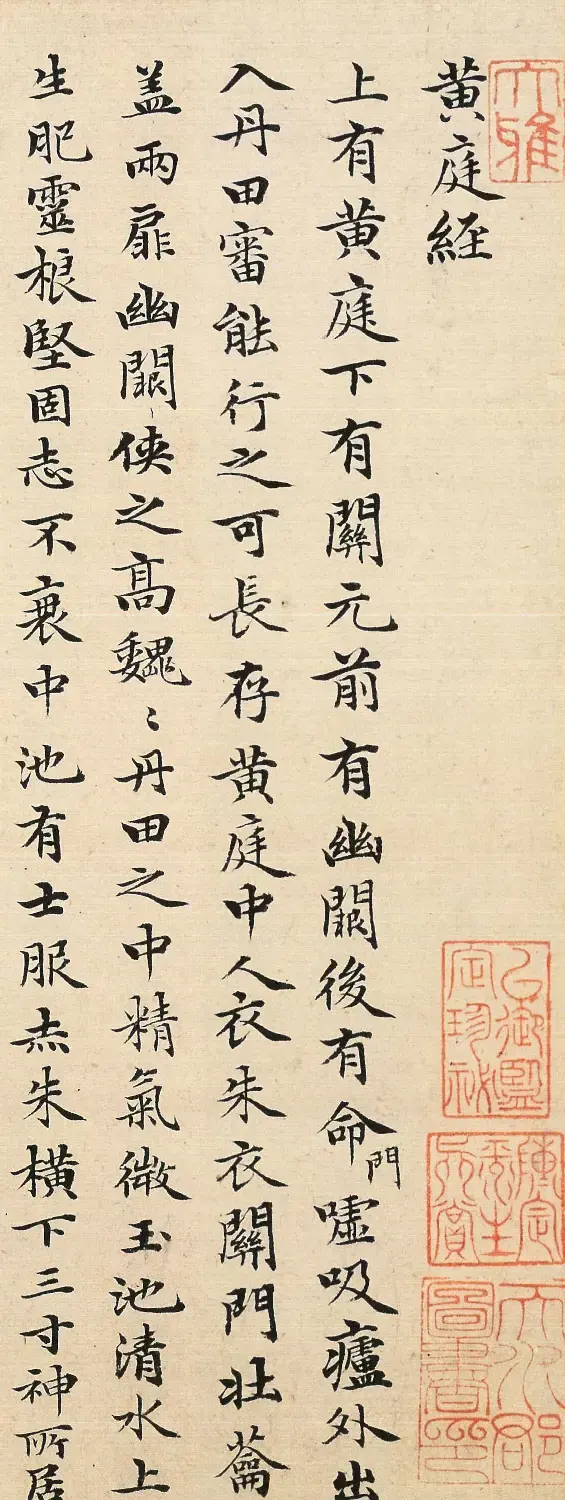 大雅
黄庭經
上有黄庭下有關元前有幽闕後有命門噓吸廬外出
入丹田審能行之可長存黄庭中人衣朱衣關門壯蘥
盖兩扉幽闕俠之高魏〻丹田之中精氣微玉池清水上
生肥靈根堅固志不衰中池有士服赤朱横下三寸神所居
天水郡圖書印